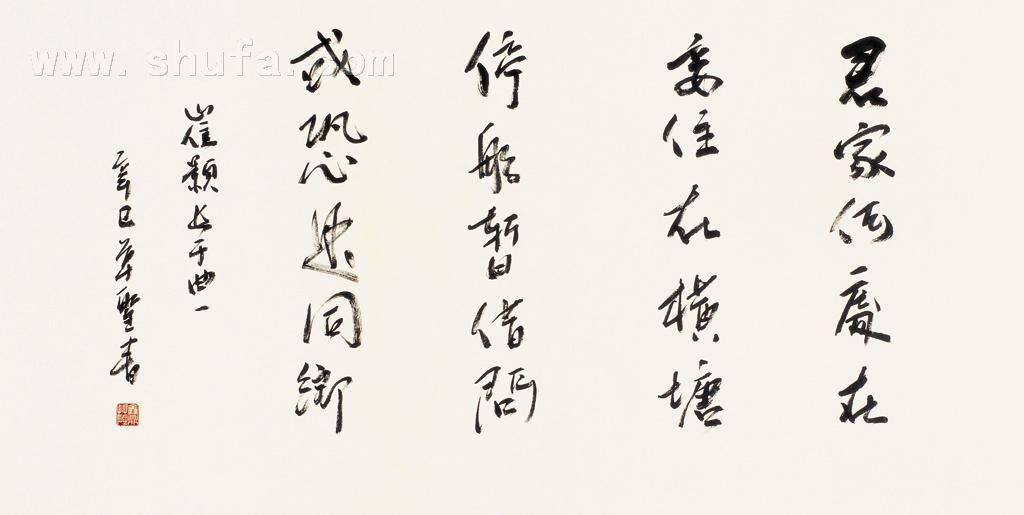 君家何處在
妾住在橫塘
停船暫借問
或恐是同鄉
崔顥长干曲一
辛巳 書
www.shufa.com